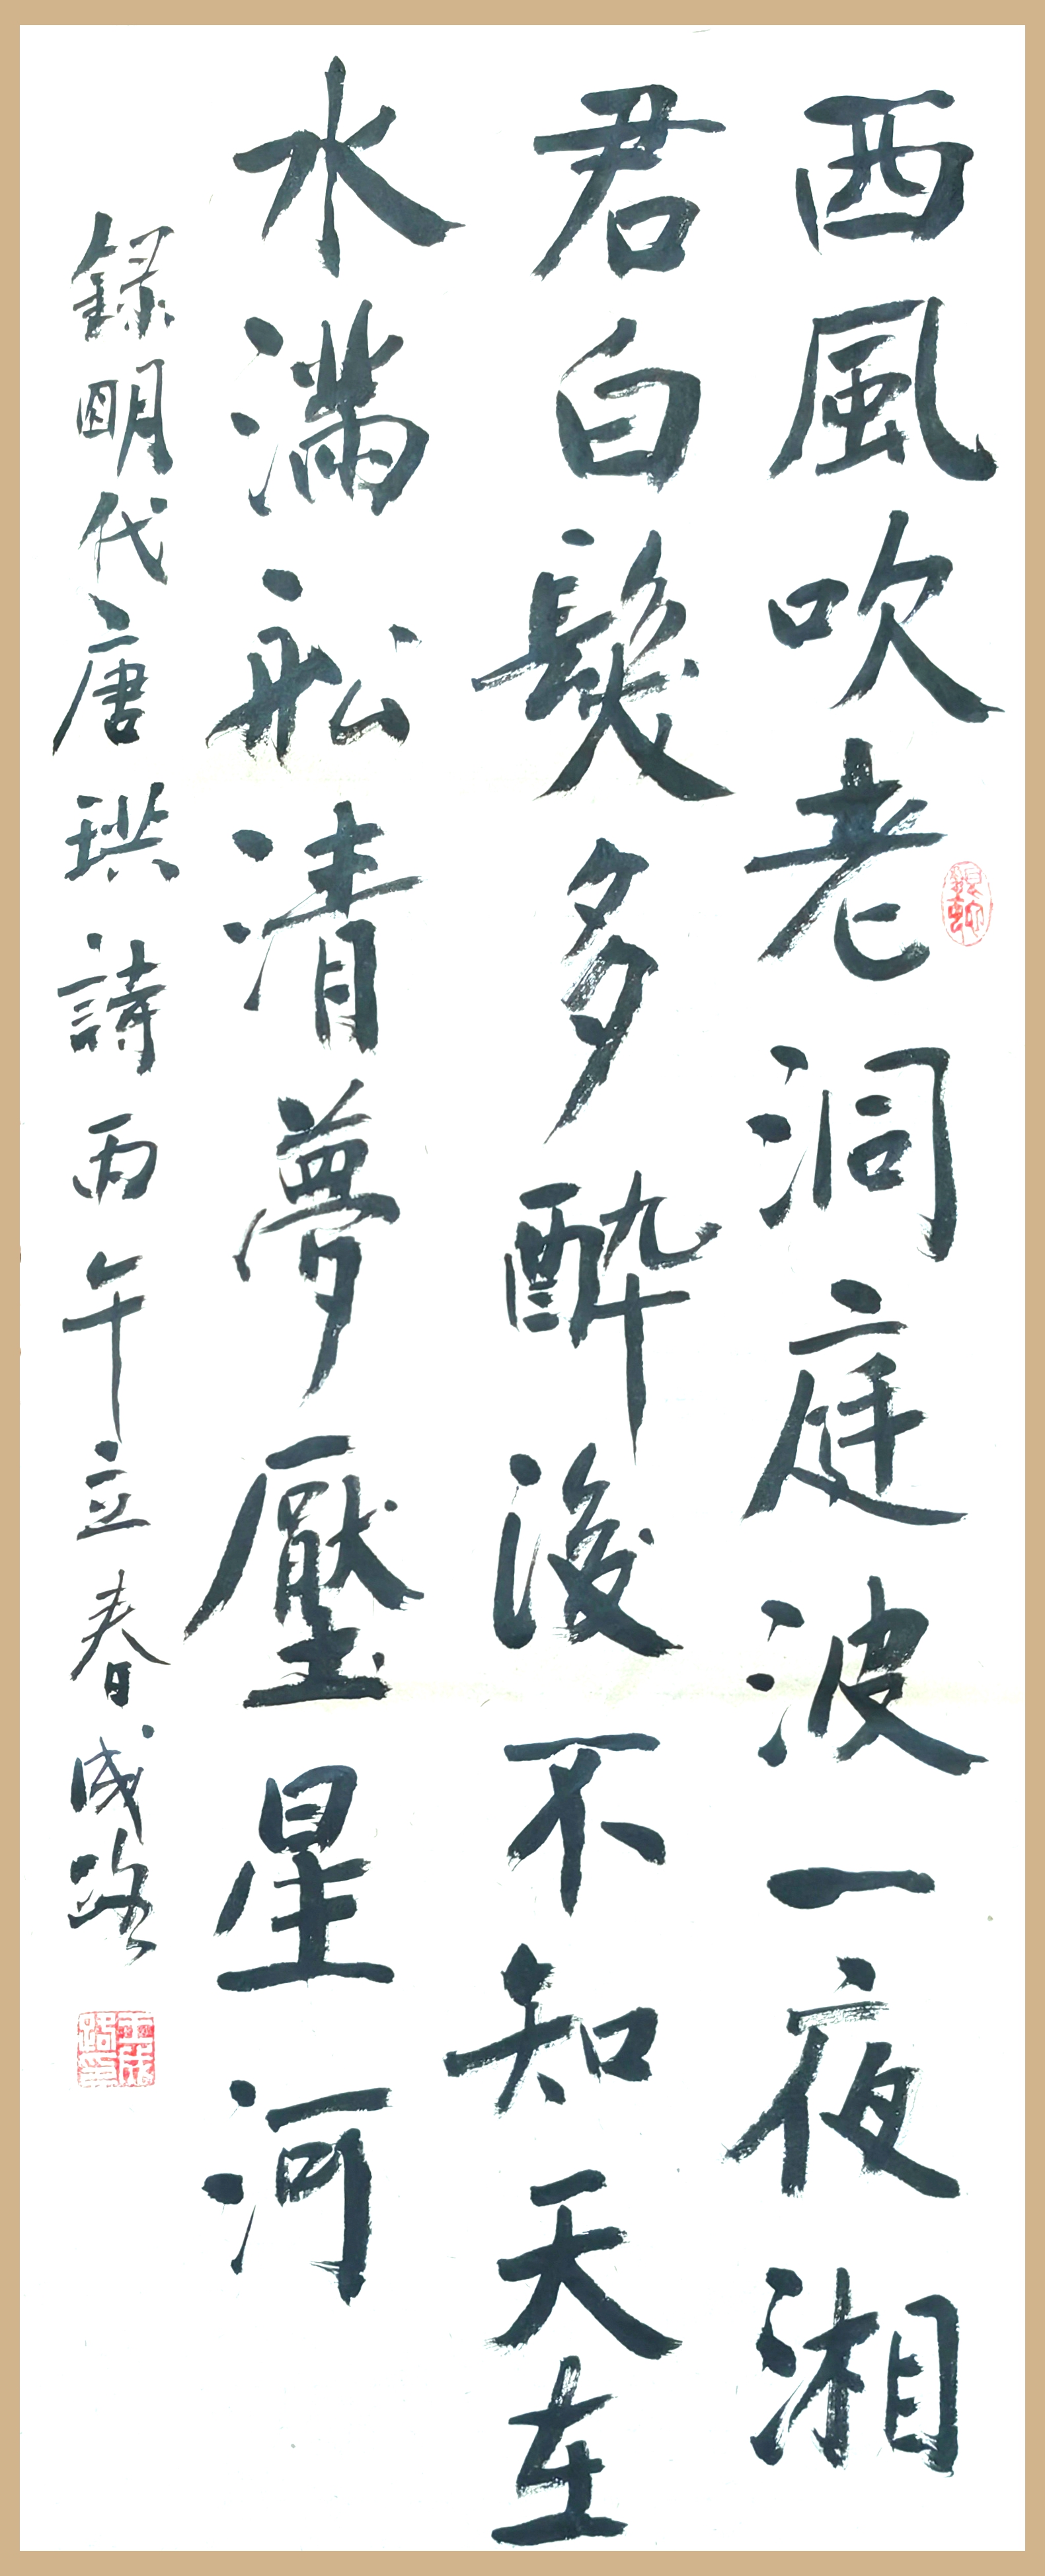 西風吹老洞庭波一夜湘
君白髮多醉後不知天在
水滿船清夢壓星河
録明代唐珙詩丙午立春成路
王成路印